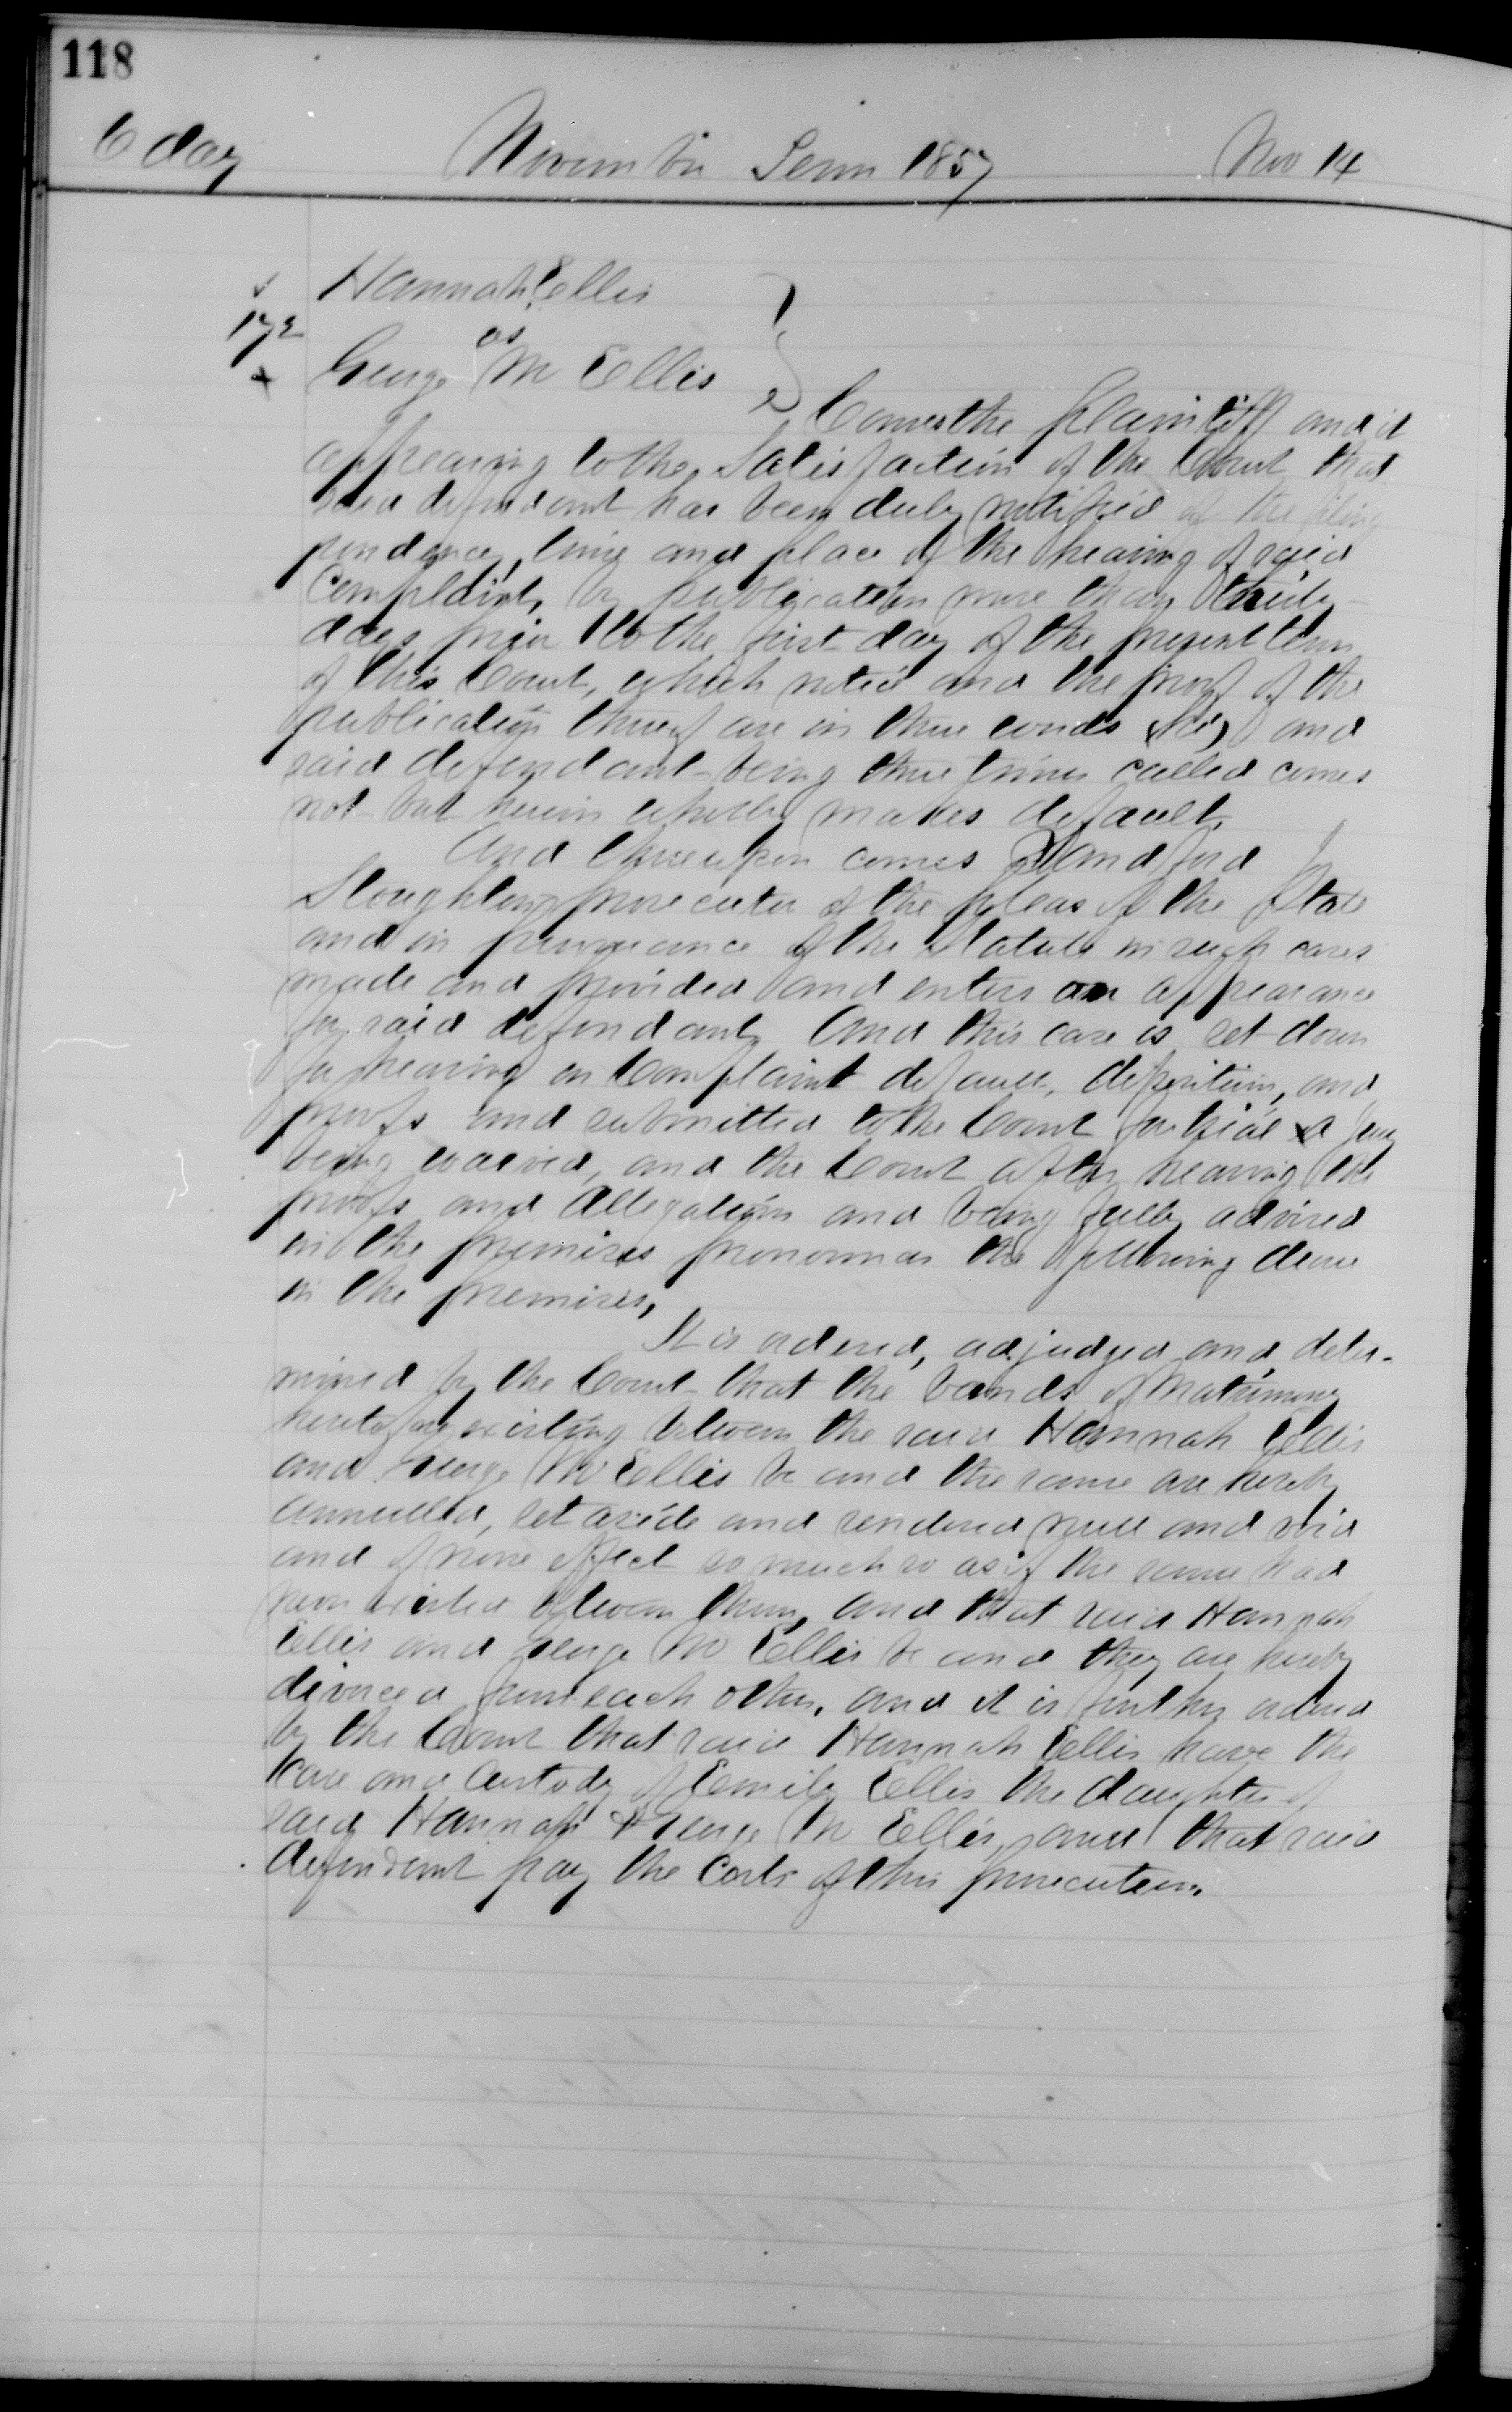 118
6 day November Term 1857 Nov 14
Hannah Ellis
172 vs
George M Ellis
Comes the plaintiff and it
appearing to the Satisfaction of the Court that
said defendant has been duly notified of the filing
pendency, time and place of the hearing of said
Complaint, by publication more than thirty
days prior to the first day of the present term
of this Court, which notice and the proof of the
publication thereof are in these words (viz) and
said defendant being three times called comes
not but herein wholly makes default.
And thereupon comes Sandford
Stoughton prosecutor of the pleas of the State
and in pursuance of the Statute in such cases
made and provided and enters an appearance
for said defendant, And this case is set down
for hearing on Complaint default, depositions, and
proofs and submitted to the Court for trial a jury
being waived, and the Court after hearing the
proofs and Allegations and being fully advised
in the premises pronounces the following decree
in the premises,
It is ordered, adjudged and deter-
mined by the Court that the bands of Matrimony
heretofore existing between the said Hannah Ellis
and George M Ellis be and the same are hereby
annulled, set aside and rendered null and void
and of none effect so much so as if the same had
never existed between them, and that said Hannah
Ellis and George M Ellis be and they are hereby
divorced from each other, and it is further ordered
by the Court that said Hannah Ellis have the
Care and Custody of Emily Ellis the daughter of
said Hannah & George M Ellis, and that said
defendant pay the Costs of this prosecution.